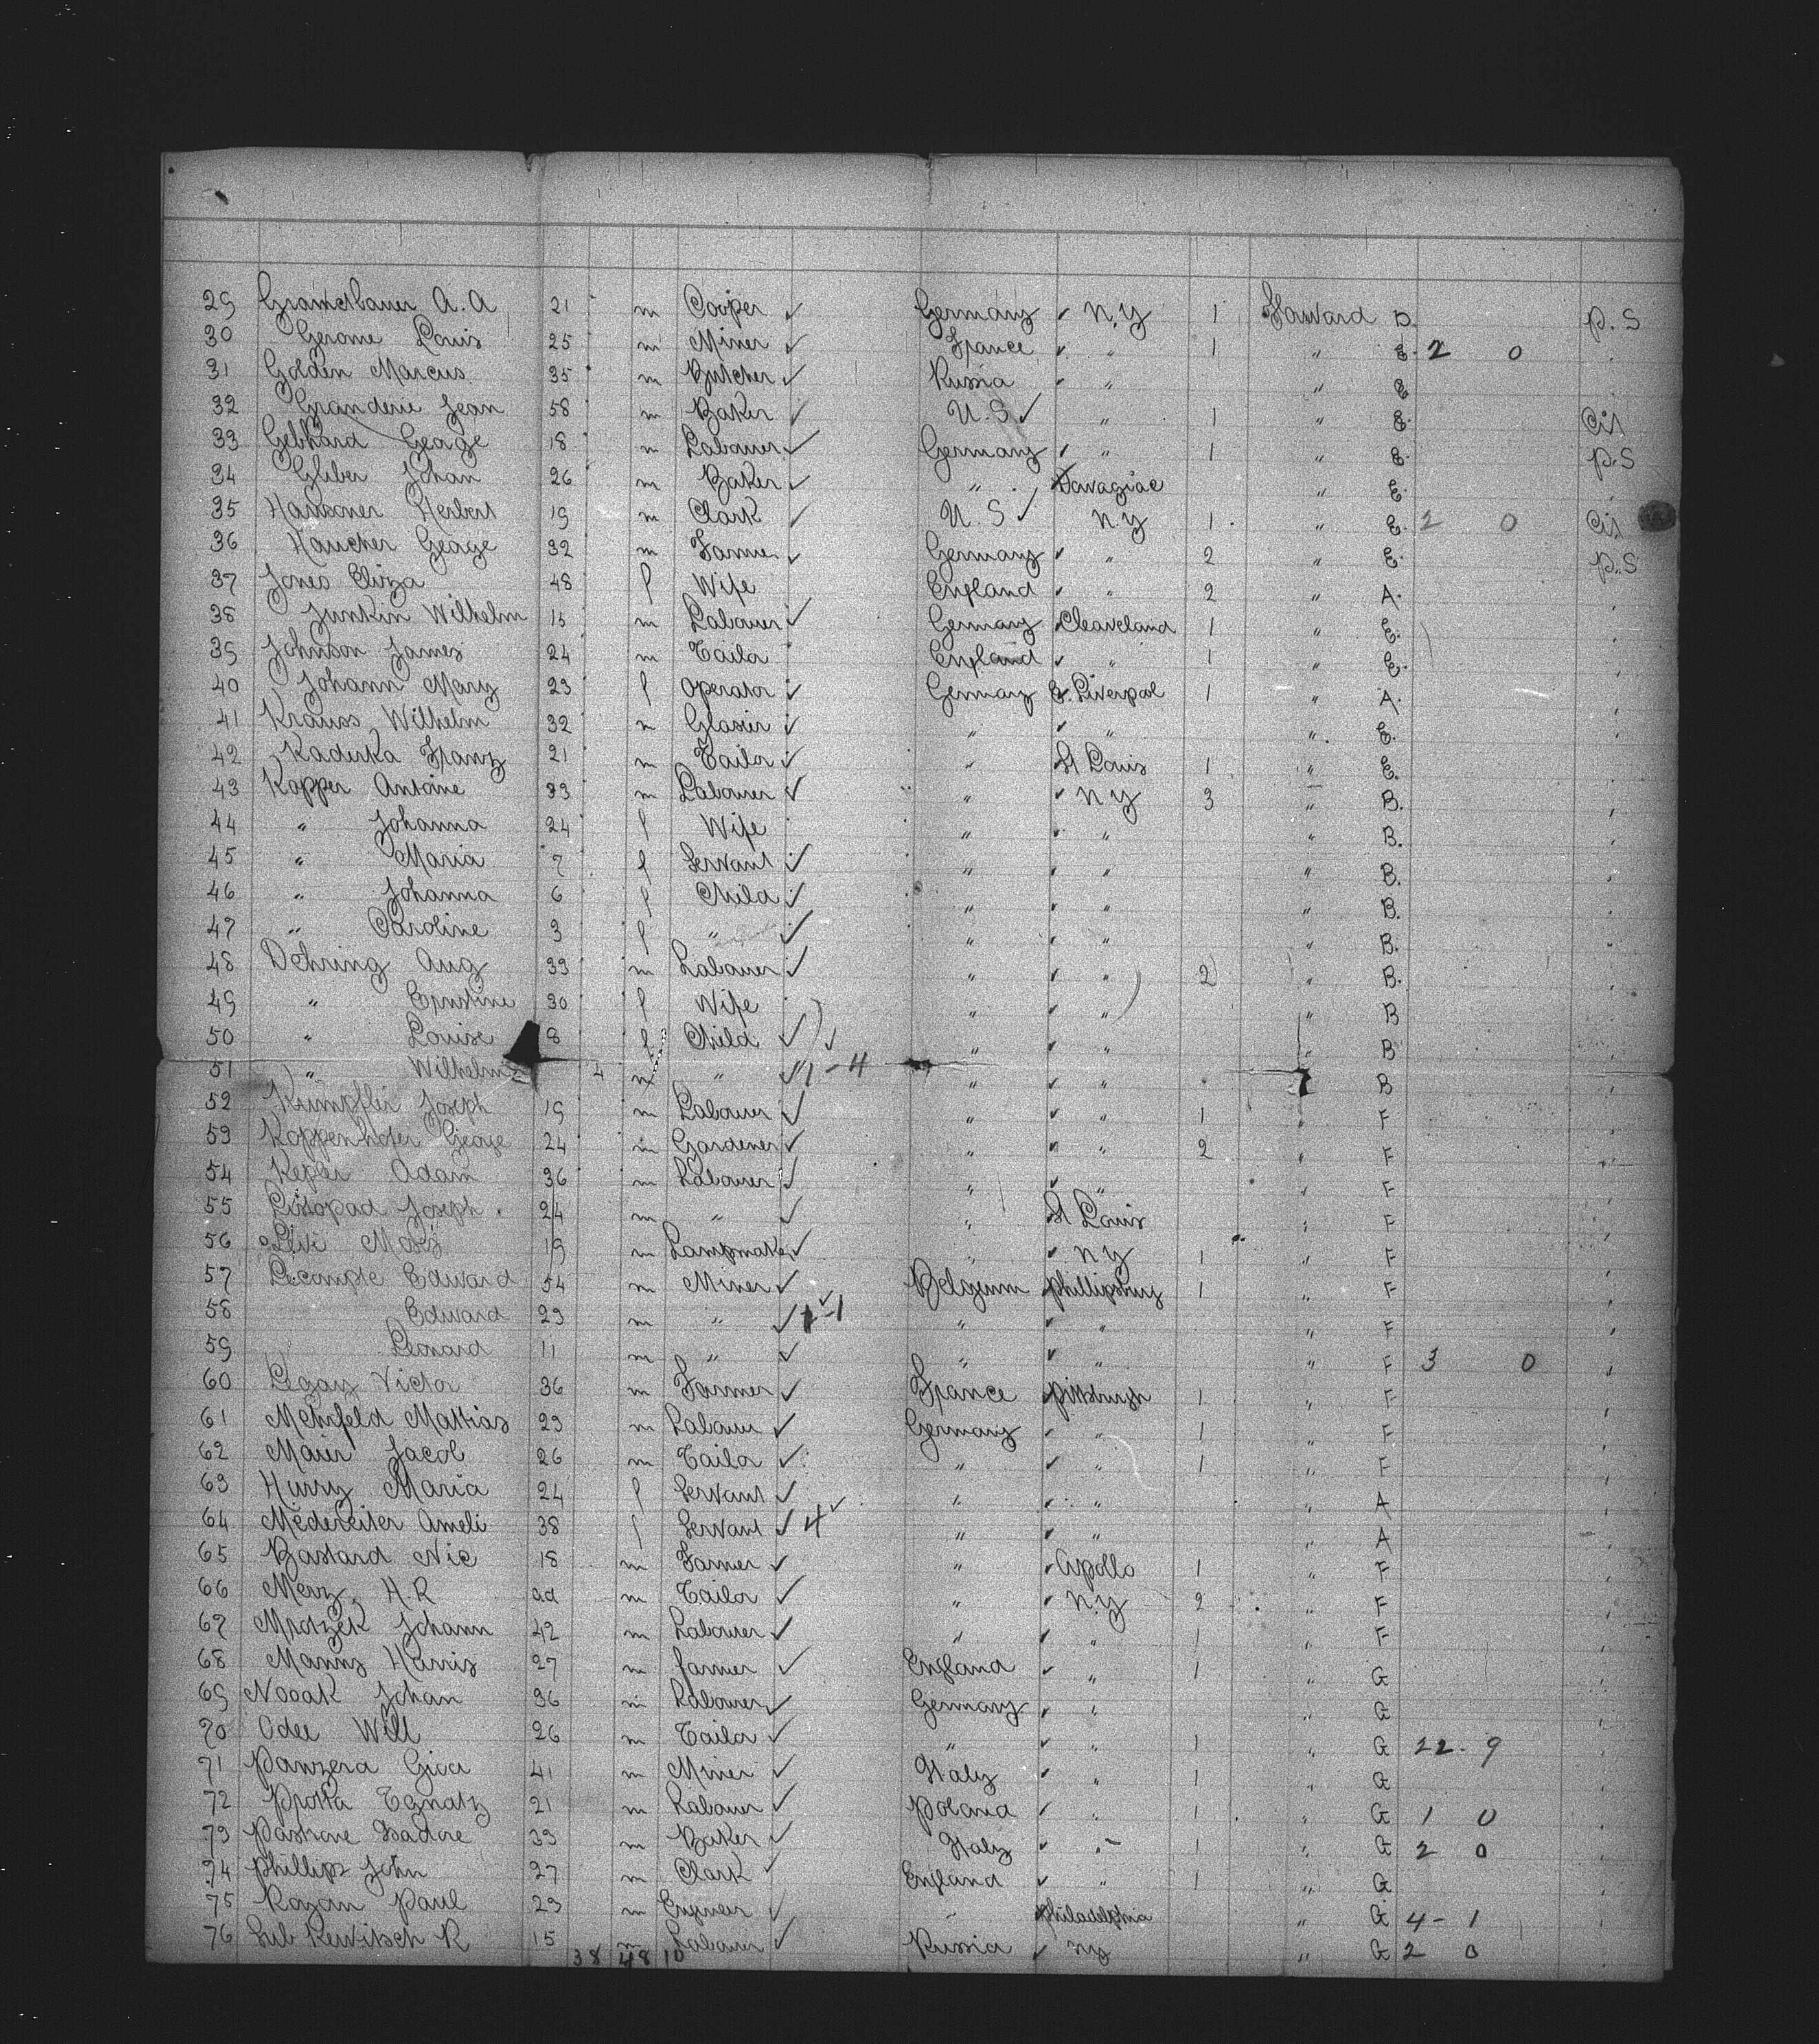 29 A. A 21 m Cooper ✓ Germany ✓ N.Y 1 Forward D. P. S
30 Gerome Louis 25 m Miner ✓ France ✓ " 1 " E. 2 0 "
31 Golden Marcus 35 m Butcher ✓ Russia ✓ " " E
32 Granderie Jean 58 m Baker ✓ U.S ✓ " 1 " E. Cit
33 Gebhard George 18 m Labourer ✓ Germany ✓ " 1 " E. P.S
34 Gliber Johan 26 m Baker ✓ " Dowagiac " E. "
35 Herbert 19 m Clark ✓ U.S ✓ N.Y 1 " E. 2 0 Cit
36 Haucher George 32 m Farmer ✓ Germany ✓ " 2 " E. P.S
37 Jones Eliza 48 f Wife England ✓ " 2 " A. "
38 Junkin Wilhelm 15 m Labourer ✓ Germany ✓ Cleaveland 1 " E. "
39 Johnson James 24 m Tailor England ✓ " 1 " E. "
40 Johann Mary 23 f Operator ✓ Germany E. Liverpool 1 " A. "
41 Krauss Wilhelm 32 m Glasier ✓ " ✓ " " E. "
42 Kaduka Franz 21 m Tailor ✓ " St Louis 1 " E.
43 Kopper Antoine 33 m Labourer ✓ " ✓ N Y 3 " B. "
44 " Johanna 24 f Wife " ✓ " " B. "
45 " Maria 7 f Servant ✓ " ✓ " " B. "
46 " Johanna 6 f Child ✓ " ✓ " " B. "
47 " Caroline 3 f " ✓ " ✓ " " B. "
48 Dehring Aug 33 m Labourer ✓ " ✓ " 2 " B. "
49 " Ernstine 30 f Wife " ✓ " " B "
50 " Louise 8 f Child ✓ " ✓ " " B "
51 " Wilhelm 4 m " ✓ 1 - 4 " ✓ " B "
52 Kumpfler Joseph 19 m Labourer ✓ " ✓ " 1 " F "
53 Koppenhofer George 24 m Gardener ✓ " ✓ " 2 " F "
54 Kepler Adam 36 m Labourer ✓ " ✓ " " F "
55 Listopad Joseph 24 m " ✓ " St Louis " F "
56 Levi Moses 19 m Lampmaker ✓ " ✓ N Y 1 " F "
57 Lecomple Edward 54 m Miner ✓ Belgium Phillipsburg 1 " F "
58 Edward 23 m " ✓ 1 - 1 " ✓ " " F "
59 " Leonard 11 m " ✓ " ✓ " " F 3 0 "
60 Legay Victor 36 m Farmer ✓ France Pittsburgh 1 " F "
61 Mehrfeld Mattias 23 m Labourer ✓ Germany ✓ " 1 " F "
62 Maier Jacob 26 m Tailor ✓ " ✓ " 1 " F "
63 Maria 24 f Servant ✓ " ✓ " " A "
64 Medereiter Ameli 38 f Servant ✓ 4 ✓ " ✓ " " A "
65 Bastard Nic 18 m Farmer ✓ " ✓ Apollo 1 " F "
66 Merz, H.R ad m Tailor ✓ " ✓ N.Y 2 " F "
67 Mrotzek Johann 42 m Labourer ✓ " ✓ " 1 " F "
68 Manns Harris 27 m farmer ✓ England ✓ " 1 " G "
69 Nooak Johan 36 m Labourer ✓ Germany ✓ " " G "
70 Odee Will 26 m Tailor ✓ " ✓ " 1 " G 22. 9 "
71 Panzera Giac 41 m Miner ✓ Italy ✓ " 1 " G "
72 Protta 21 m Labourer ✓ Poland ✓ " 1 " G 1 0 "
73 Isadore 33 m Baker ✓ Italy ✓ " 1 " G 2 0 "
74 Phillips John 27 m Clark ✓ England ✓ " 1 " G "
75 Rozan Paul 23 m Engineer ✓ " Philadelphia " G 4 - 1 "
76 Lub Kewitsch R 15 m Labourer ✓ Russia ✓ NY " G 2 0 "
38 48 10